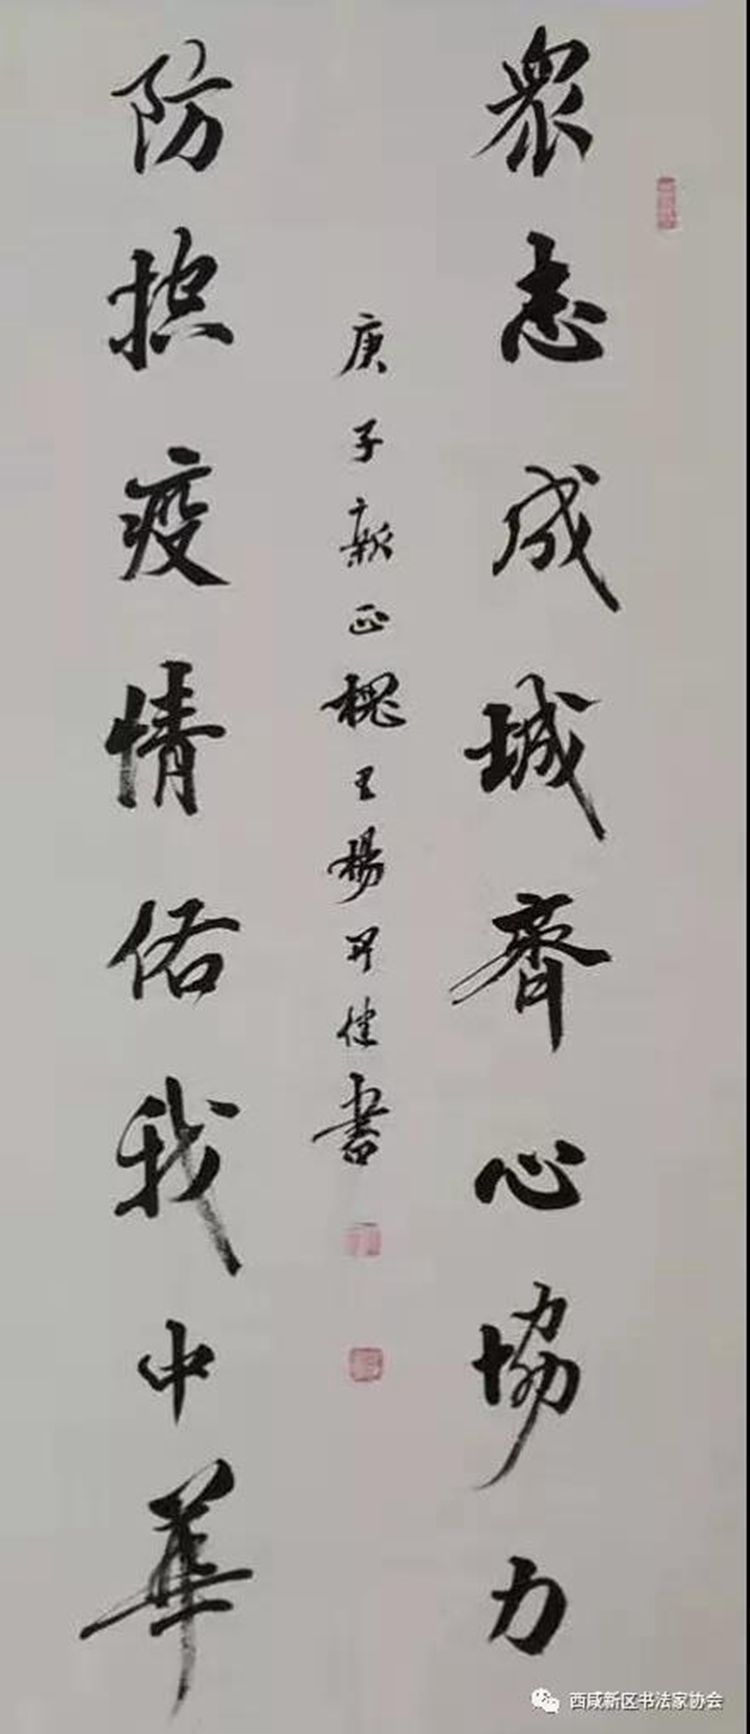 眾志成城齊心協力
防控疫情佑我中華
庚子新正槐王楊 健書
西咸新区书法家协会